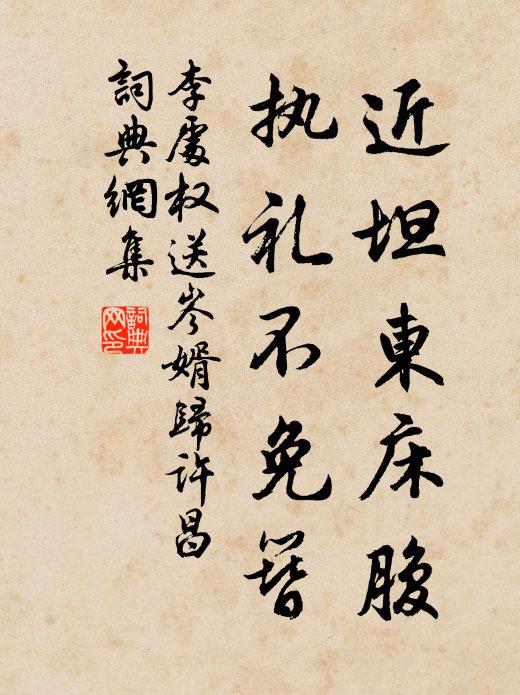 近坦東床腹
执礼不免簪
李處权送岑婿歸许昌
詞典網集
詞典网印